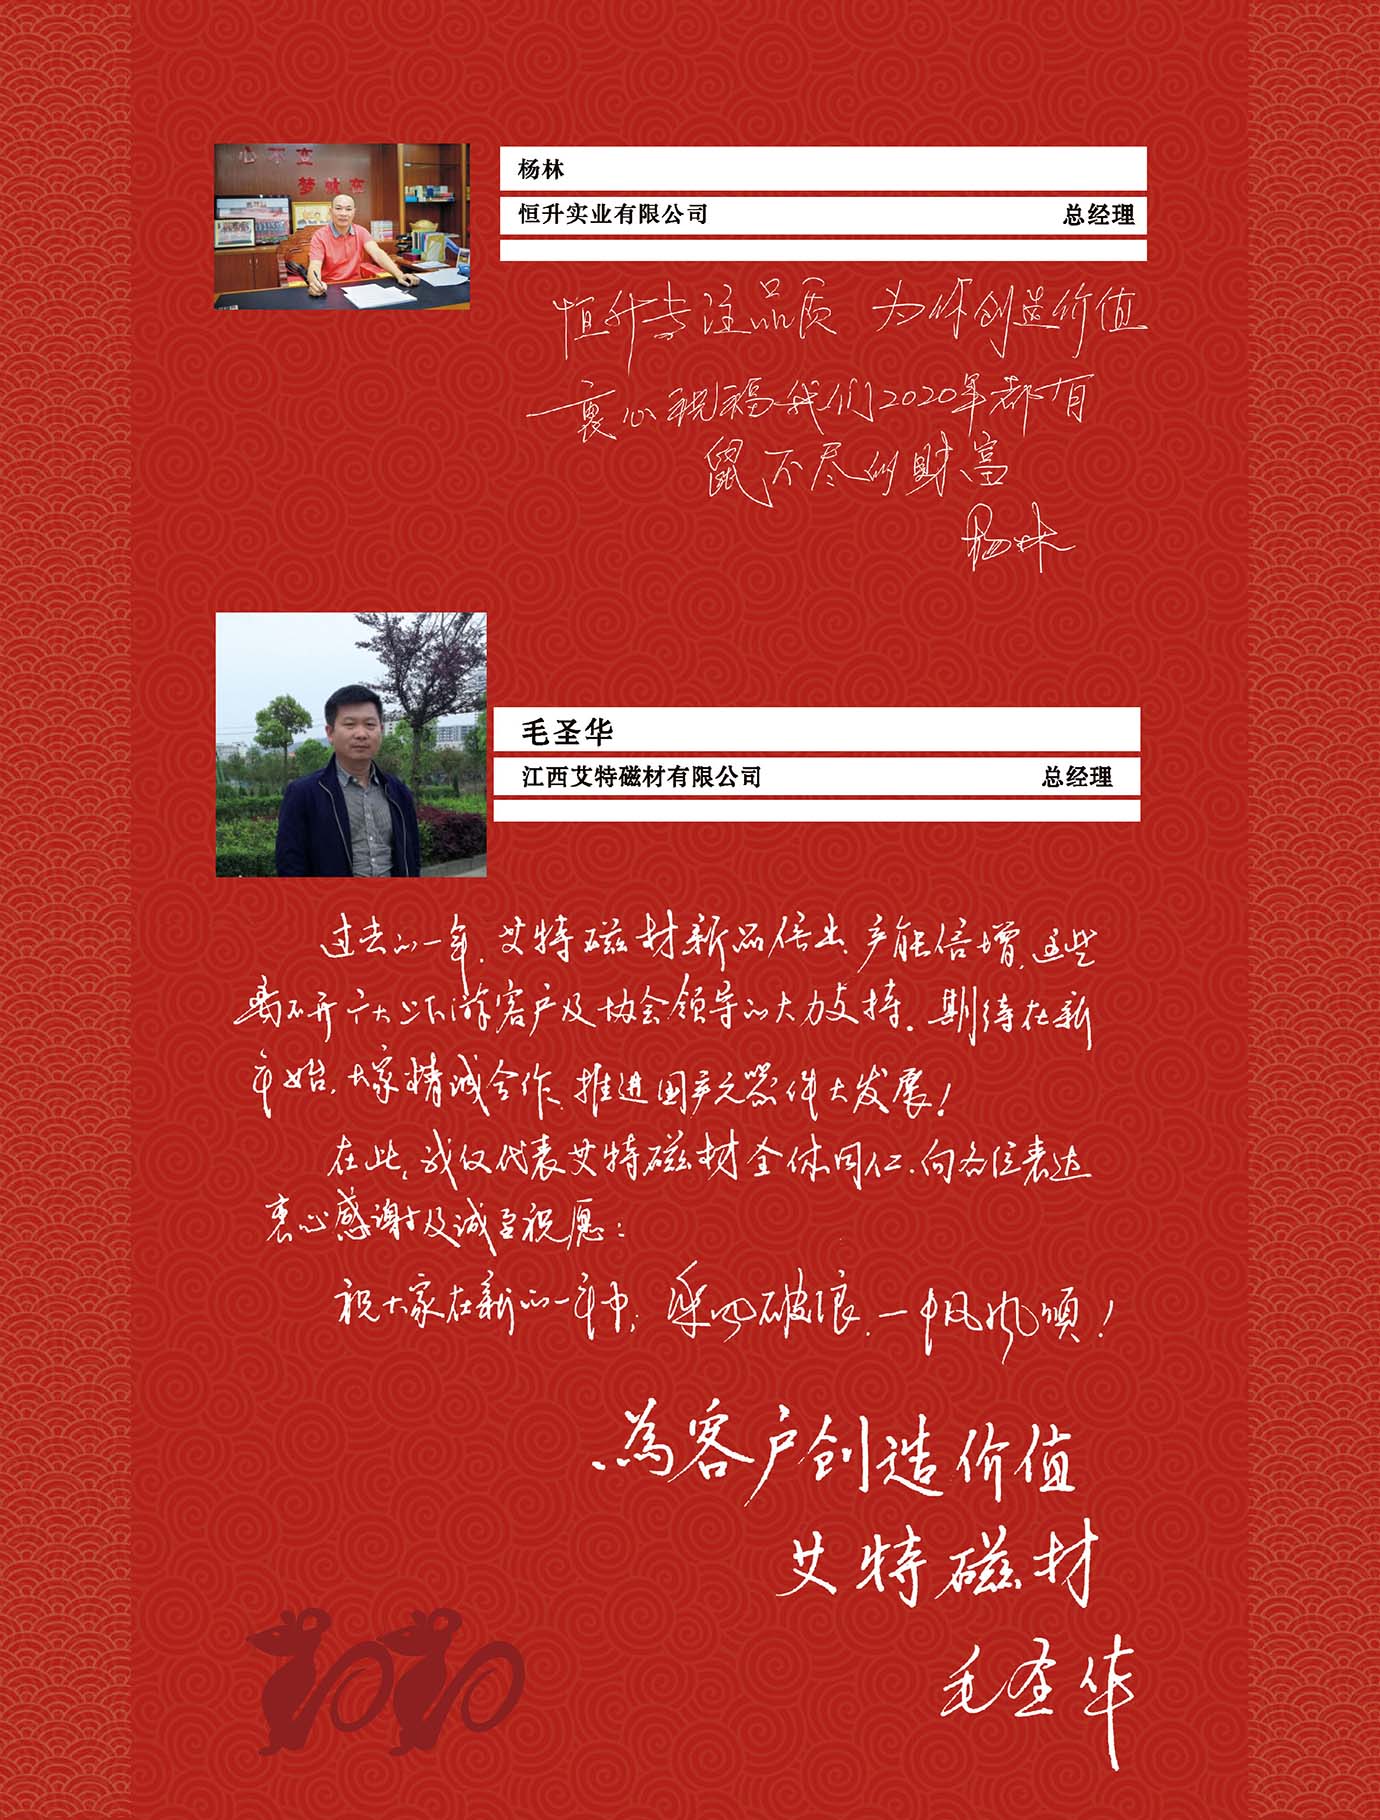 心不立
梦就在
杨林
恒升实业有限公司 总经理
恒升专注品质 为你创造价值
衷心祝福我们2020年都有
鼠不尽的财富
杨林
毛圣华
江西艾特磁材有限公司 总经理
过去的一年，艾特磁材新品倍出、产能倍增，这些
离不开广大上下游客户及协会领导的大力支持。期待在新
年始，大家精诚合作、推进国产元器件大发展！
在此，我仅代表艾特磁材全体同仁，向各位表达
衷心感谢及诚至祝愿：
祝大家在新的一年中，乘风破浪，一帆风顺！
為客户创造价值
艾特磁材
毛圣华